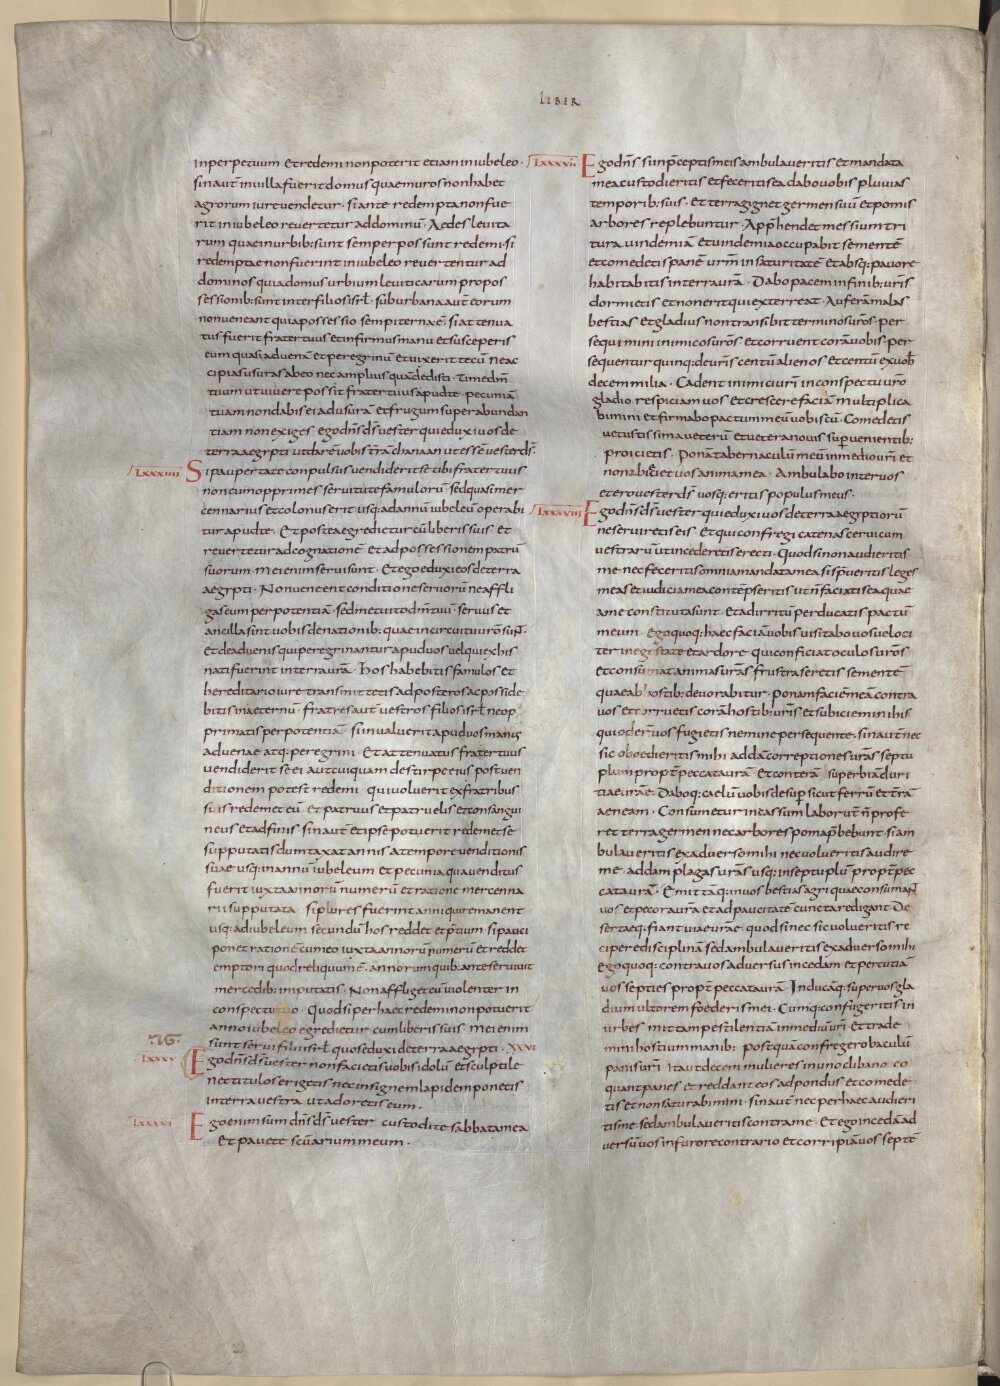 LIBER
inperpetuum Et redemi non poterit etiam in iubeleo ·
sin aut̄ in uilla fuerit domus quae muros non habet
agrorum iure uendetur · si ante redempta non fue
rit in iubeleo reuertetur ad dominū · Aedes leuita
rum quae in urbib: sunt semper possunt redemi · si
redemptae non fuerint in iubeleo reuertentur ad
dominos quia domus urbium leuiticarum pro pos
sessionib: sunt inter filios isrl̄ · suburbana aut̄ eorum
non ueneant quia possessio sempiterna ē · si attenua
tus fuerit frater tuus et infirmus manu et susceperis
eum quasi aduenā et peregrinū et uixerit tecū ne ac
cipias usuras ab eo nec amplius quā dedisti · time dm̄
tuum ut uiuere possit frater tuus apud te · pecuniā
tuam non dabis ei ad usurā et frugum superabundan
tiam non exiges ego dn̄s ds̄ uester qui eduxi uos de
terra aegypti ut darē uobis trā chanaan ut essē uester ds̄ ·
LXXXIIII Si paupertate conpulsus uendiderit se tibi frater tuus
non eum opprimes seruitute famulorū · sed quasi mer
cennarius et colonus erit usq: ad annū iubeleū operabi
tur apud te · Et postea egredietur cū liberis suis · Et
reuertetur ad cognationē · Et ad possessionem patrū
suorum · mei enim serui sunt · Et ego eduxi eos de terra
aegypti · Non ueneent conditione seruorū ne affli
gas eum per potentiā · sed metuito dm̄ tuū · seruus et
ancilla sint uobis de nationib: quae in circuitu urōs un̄t ·
Et de aduenis qui peregrinantur apud uos uel qui ex his
nati fuerint in terra urā · hos habebitis famulos et
hereditario iure transmittetis ad posteros ac posside
bitis in aeternū · fratres aut̄ uestros filios isrl̄ ne op
primatis per potentiā · si inualuerit apud uos manus
aduenae atq: peregrini · Et attenuatus frater tuus
uendiderit se ei aut cuiquam de stirpe eius post uen
ditionem potest redemi · qui uoluerit ex fratribus
suis redemet eū · et patruus et patruelis et consangui
neus et adfinis · sin aut̄ et ipse potuerit redemet se
supputatis dumtaxat annis a tempore uenditionis
suae usq: in annū iubeleum et pecunia qua uenditus
fuerit iuxta annorū numerū et ratione mercenna
rii supputata · si plures fuerint anni qui remanent
usq: ad iubeleum secundū hos reddet et p̄tium · si pauci
ponet rationē cum eo iuxta annorū numerū et reddet
emptori quod reliquum ē · annorum quib: ante seruiuit
mercedib: imputatis · Non affliget eū uiolenter in
conspectu tuo · Quod si per haec redemi non potuerit
anno iubeleo egredietur cum liberis suis · mei enim
sunt serui filii isrl̄ quos eduxi de terra aegypti · XXVI
LXXXV Ego dn̄s ds̄ uester non facietis uobis idolū et sculptile
nec titulos erigetis nec insignem lapidem ponetis
in terra uestra ut adoretis eum ·
LXXXVI Ego enim sum dn̄s ds̄ uester custodite sabbata mea
Et pauete sc̄uarium meum ·
LXXXVII Ego dn̄s si in p̄ceptis meis ambulaueritis et mandata
mea custodieritis et feceritis ea dabo uobis pluuias
temporib: suis · Et terra gignet germen suū et pomis
arbores replebuntur · App̄hendet messium tri
tura uindemiā et uindemia occupabit sementē
et comedetis panē urm̄ in saturitatē et absq: pauore
habitabitis in terra urā · Dabo pacem in finib: uris̄
dormietis et non erit qui exterreat · Auferā malas
bestias et gladius non transibit terminos urōs · per
sequimini inimicos urōs et corruent corā uobis · per
sequentur quinq: de uris̄ centū alienos et centū ex uob̄
decem milia · Cadent inimici uri̅ in conspectu urō
gladio respiciam uos et crescere faciā multiplica
bimini et firmabo pactum meū uobiscū · Comedetis
uetustissima ueterū et uetera nouis superuenientib:
proicietis · Ponā tabernaculum meū in medio uri̅ et
non abiciet uos anima mea · Ambulabo inter uos
et ero uester ds̄ uosq: eritis populus meus ·
LXXXVIII Ego dn̄s ds̄ uester qui eduxi uos de terra aegyptiorū
ne seruiretis eis · Et qui confregi catenas ceruicum
uestrarū ut incederetis erecti · Quod si non audieritis
me · nec feceritis omnia mandata mea si sp̄ueritis leges
meas et iudicia mea contēpseritis ut n̄ faciatis ea quae
a me constituta sunt · Et ad irritū perducatis pactū
meum · ego quoq: haec faciā uobis uisitabo uos ueloci
ter in egistate et ardore · qui conficiat oculos urōs
et consumat animas urās frustra seretis sementē
quae ab hostib: deuorabitur · ponam faciē meā contra
uos et corruetis corā hostib: uris̄ et subiciemini his
qui oderūt uos fugietis nemine persequente · sin aut̄ nec
sic oboedieritis mihi addā correptiones urās septu
plum propt̄ peccata urā · Et conterā superbiā duri
tiae urāe · Daboq: caelū uobis desuper sicut ferrū et terā
aeneam · Consumetur incassum labor ur̄ · n̄ profe
ret terra germen nec arbores poma p̄bebunt · si am
bulaueritis ex aduerso mihi nec uolueritis audire
me · addam plagas urās usq: in septuplū propt̄ pec
cata urā · Emittāq: in uos bestias agri quae consumant
uos et pecora urā et ad paucitatē cuncta redigant · De
sertaeq: fiant uiae urāe · quod si nec sic uolueritis re
cipere disciplinā sed ambulaueritis ex aduerso mihi
ego quoq: contra uos aduersus incedam et percutiā
uos septies propt̄ peccata urā · Inducāq: super uos gla
dium ultorem foederis mei · Cumq: confugeritis in
urbes mittam pestilentiā in medio uri̅ et trade
mini hostium manib: · postquā confregero baculū
panis uri̅ · Ita ut decem mulieres in uno clibano co
quant panes et reddant eos ad pondus et comede
tis et non saturabimini · sin aut̄ nec per haec audieri
tis me · sed ambulaueritis contra me · Et ego incedā ad
uersū uos in furore contrario et corripiā uos septē